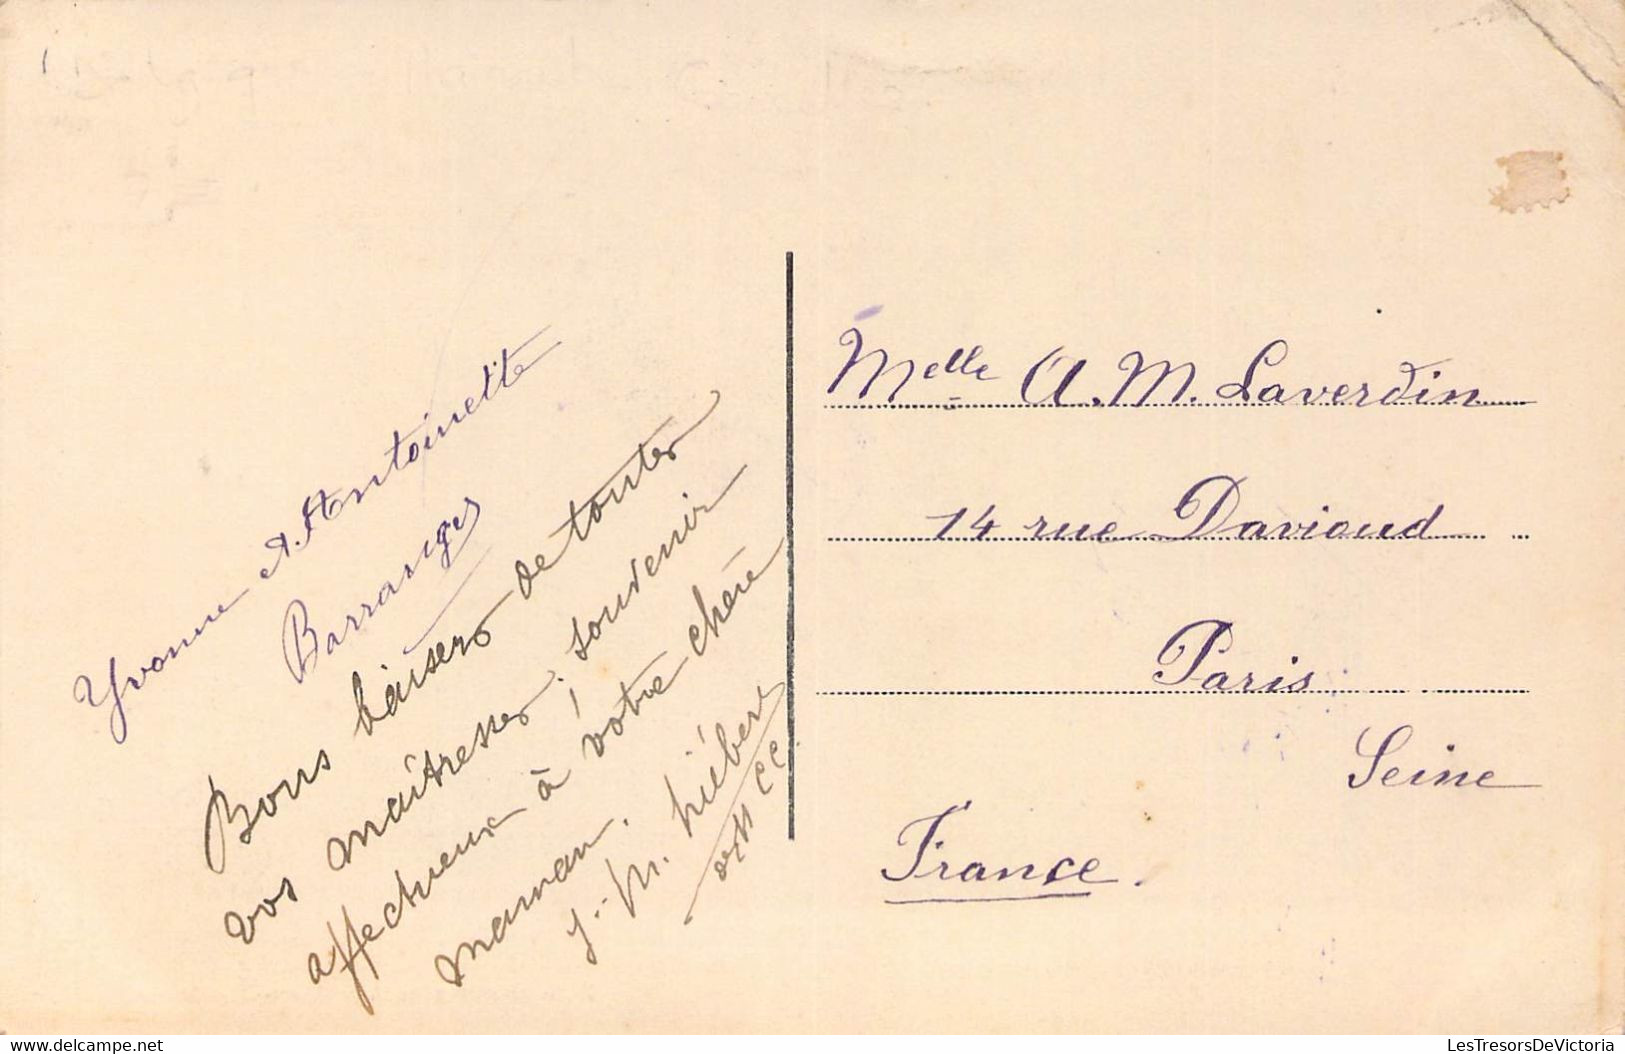 Yvonne et Antoinette
Barranger
Bons baisers de toutes
vos maîtresses, souvenir
affectueux à votre chère
maman.
J. M. hiébert
Melle A. M. Laverdin
14 rue Davioud
Paris
Seine
France.
delcampe.net
LesTresorsDeVictoria